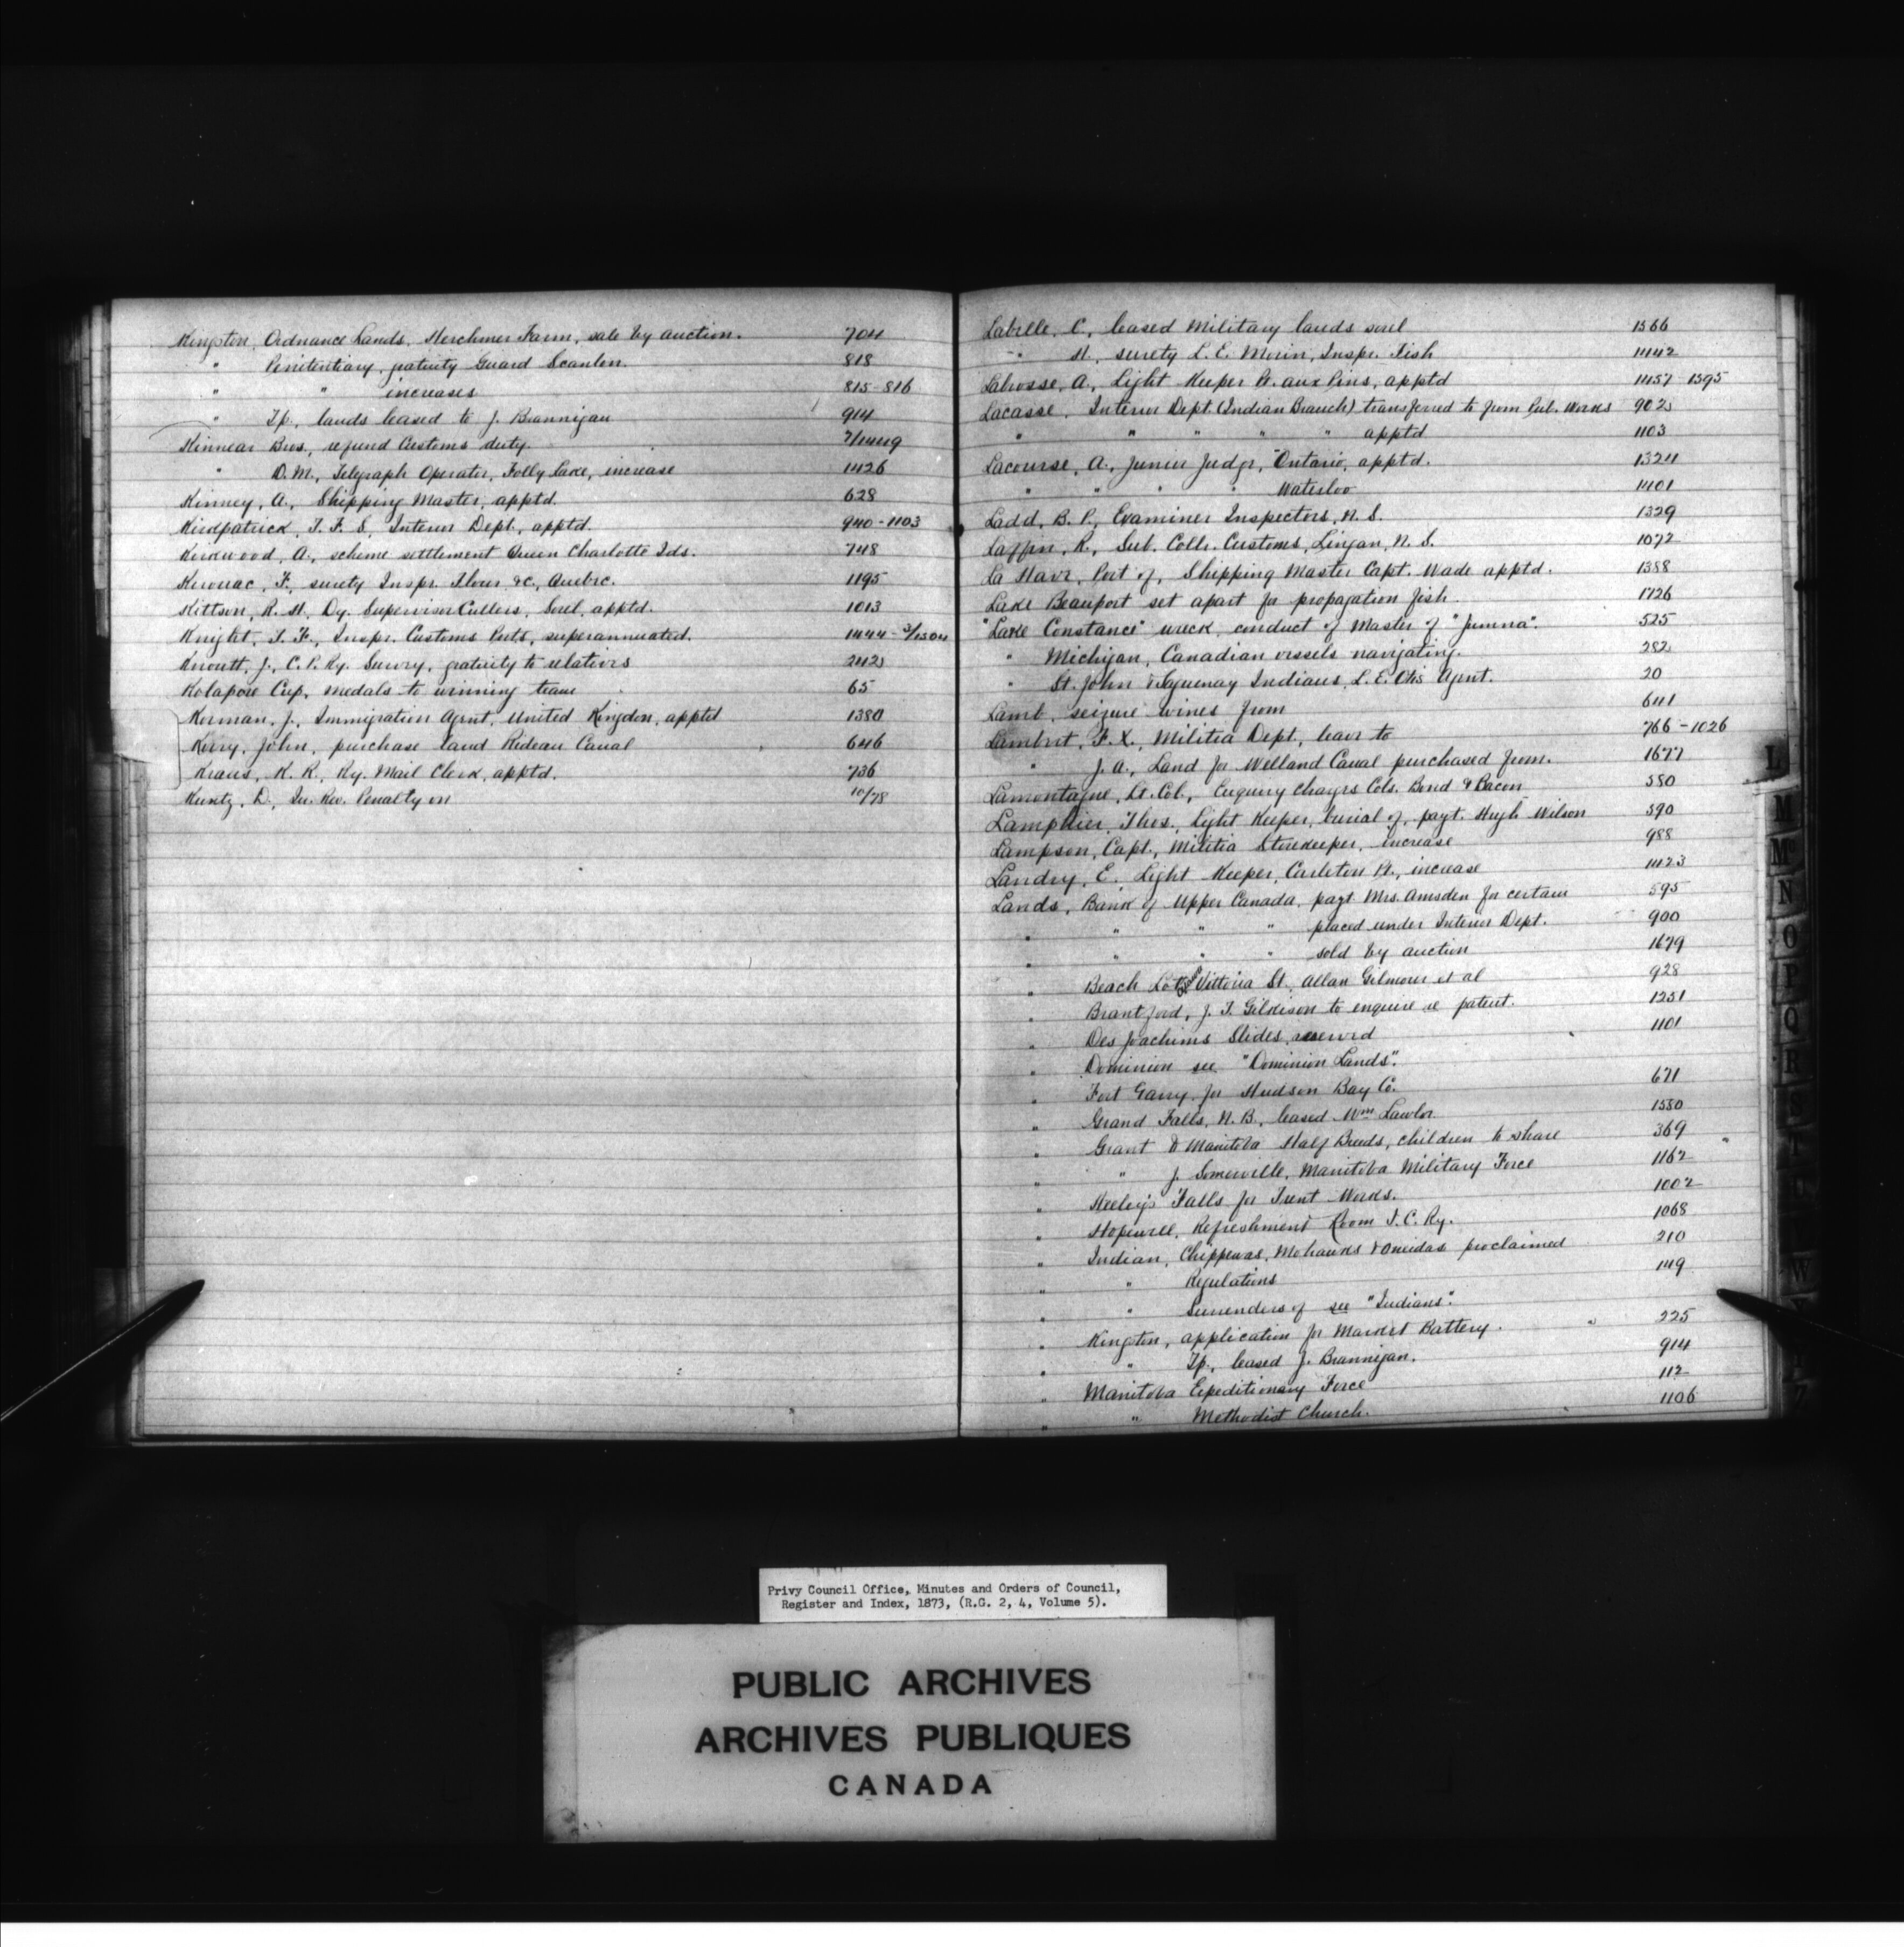 Kingston, Ordnance Lands, Herchmer Farm, sale by auction. 704
" Penitentiary, gratuity Guard Scanlon. 818
" " increases 815-816
" Tp., lands leased to J. Brannigan 914
Kinnear Bros., refund Customs duty. 7/1449
" D. M., Telegraph Operator, Folly Lake, increase 1426
Kinney, A., Shipping Master, apptd. 628
Kirkpatrick, T. F. S., Interior Dept., apptd. 940-1103
Kirkwood, A., scheme settlement Queen Charlotte Ids. 748
Kirouac, F., surety Inspr. Flour &c, Quebec. 1195
Kittson, R. H., Dy. Supervisor Cullers, Sorel, apptd. 1013
Knight, T. F., Inspr. Customs Ports, superannuated. 1444-3/1504
Knoutt, J., C. P. Ry. Survey, gratuity to relatives 242
Kolapore Cup, medals to winning team 65
Korman, J., Immigration Agent, United Kingdon, apptd 1380
Korry, John, purchase land Rideau Canal 646
Kraus, K. R., Ry. Mail Clerk, apptd. 736
Kuntz, D., In. Rev. Penalty on 10/78
Labelle, C., leased Military lands Sorel 1566
" H., surety L. E. Morin, Inspr. Fish 1442
Labrosse, A., Light Keeper Pt. aux Pins, apptd 1457-1595
Lacasse, Interior Dept. (Indian Branch) transferred to from Pub. Works 902
" " " " " apptd 1103
Lacourse, A., Junior Judge, Ontario, apptd. 1324
" " " " Waterloo 1401
Ladd, B. P., Examiner Inspectors, N. S. 1329
Laffin, R., Sub. Collr. Customs, Lingan, N. S. 1072
La Have, Port of, Shipping Master Capt. Wade apptd. 1388
Lake Beauport set apart for propagation fish. 1726
"Lake Constance" wreck, conduct of Master of "Jumna". 525
" Michigan, Canadian vessels navigating. 282
" St. John & Saguenay Indians, L. E. Otis Agent. 20
Lamb, seizure wines from 641
Lambert, F. X., Militia Dept., leave to 766-1026
" J. A., Land for Welland Canal purchased from. 1677
Lamontagne, Lt. Col., Enquiry charges Cols. Bond & Bacon 580
Lamphier, Thos., light Keeper, burial of, payt. Hugh Wilson 590
Lampson, Capt., Militia Storekeeper, increase 988
Landry, E., Light Keeper, Carleton Pt., increase 1423
Lands, Bank of Upper Canada, payt Mrs. Amsden for certain 595
" " " " placed under Interior Dept. 900
" " " " sold by auction 1679
" Beach Lots Vittoria St. Allan Gilmour et al 928
" Brantford, J. T. Gilkison to enquire re patent. 1251
" Des Joachims Slides, reserved 1101
" Dominion see "Dominion Lands".
" Fort Garry, for Hudson Bay Co. 671
" Grand Falls, N. B., leased Wm Lawlor 1580
" Grant to Manitoba Half Breeds, children to share 369
" " J. Somerville, Manitoba Military Force 1162
" Heeley's Falls for Trent Works. 1002
" Hopewell, Refreshment Room I. C. Ry. 1068
" Indian, Chippewas, Mohawks & Oneidas proclaimed 210
" " Regulations 149
" " Surrenders of see "Indians".
" Kingston, application for Market Battery. 225
" " Tp., leased J. Brannigan. 914
" Manitoba Expeditionary Force 112
" " Methodist Church. 1106
L
M
Mc
N
O
P
Q
R
T
W
Privy Council Office, Minutes and Orders of Council,
Register and Index, 1873, (R.G. 2, 4, Volume 5).
PUBLIC ARCHIVES
ARCHIVES PUBLIQUES
CANADA